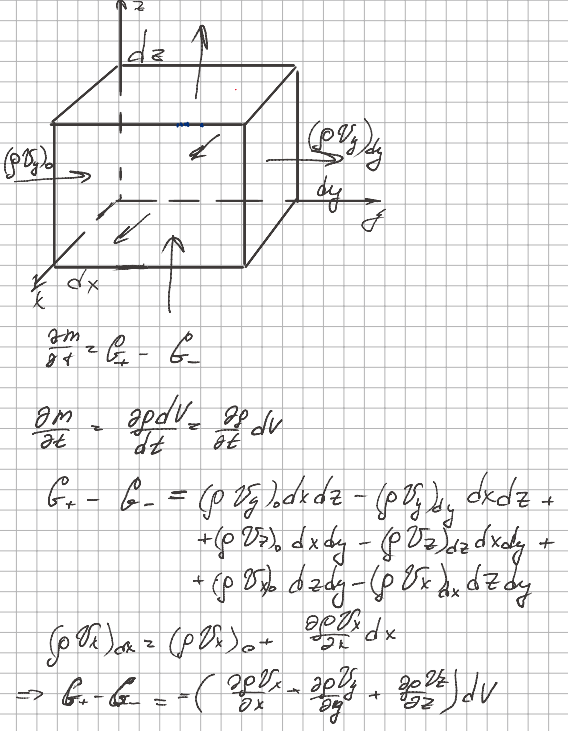 z
dz
(ρV_y)_0
(ρV_y)_dy
dy
y
dx
x
∂m/∂t = G_+ - G_-
∂m/∂t = ∂ρdV/dt = ∂ρ/∂t dV
G_+ - G_- = (ρV_y)_0 dxdz - (ρV_y)_dy dxdz +
+(ρV_z)_0 dxdy - (ρV_z)_dz dxdy +
+(ρV_x)_0 dzdy - (ρV_x)_dx dzdy
(ρV_x)_dx = (ρV_x)_0 + ∂ρV_x/∂x dx
=> G_+ - G_- = -(∂ρV_x/∂x + ∂ρV_y/∂y + ∂ρV_z/∂z) dV